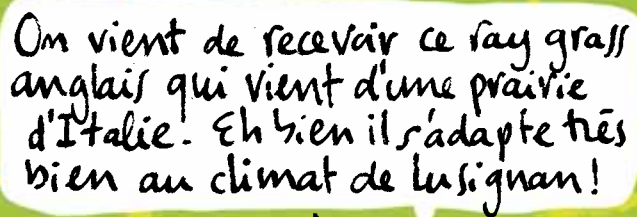 On vient de recevoir ce ray grass
anglais qui vient d'une prairie
d'Italie. Eh bien il s'adapte très
bien au climat de Lusignan!